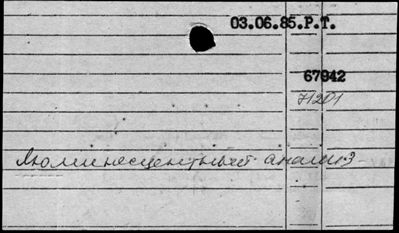 03.06.85.Р.Т.
67942
71201
Люминесцентный анализ